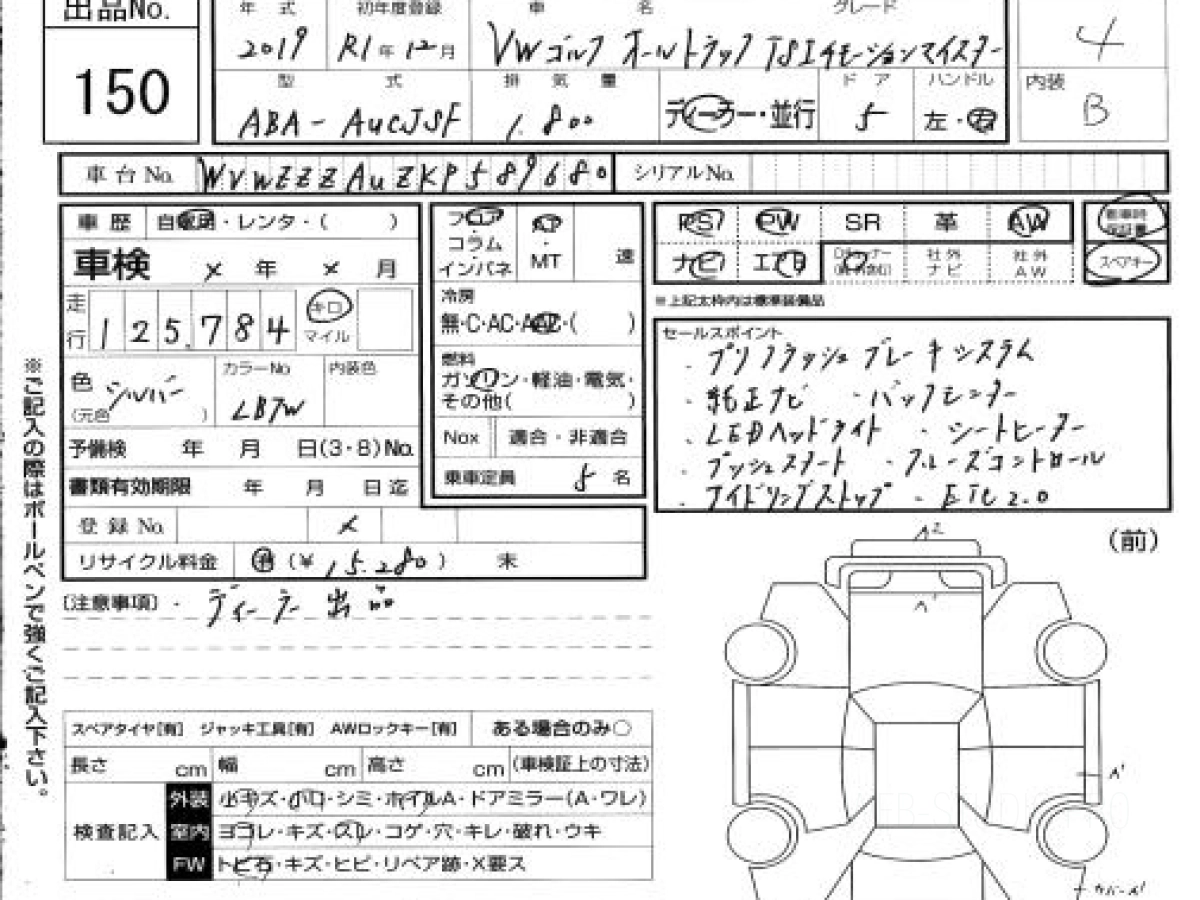 出品No. 年式 初年度登録 車名 グレード
150 2019 R1年12月 VWゴルフ オールトラック TSIエモーションマイスター 4
型式 排気量 ドア ハンドル 内装
ABA-AUCJSF 1.800 ディーラー・並行 5 左・右 B
車台No. WVWZZZAUZKP589680 シリアルNo.
車歴 自家用・レンタ・( )
車検 ×年 ×月
走行 125,784 キロ マイル
色 シルバー (元色 ) カラーNo LB7W 内装色
予備検 年 月 日(3・8)No.
書類有効期限 年 月 日迄
登録No. ×
リサイクル料金 済 (¥15.280) 未
フロア コラム インパネ AT・MT 速
冷房
無・C・AC・AAC・( )
燃料
ガソリン・軽油・電気・
その他( )
Nox 適合・非適合
乗車定員 5名
PS PW SR 革 AW 新車時保証書
ナビ エアB 社外ナビ 社外AW スペアキー
※上記太枠内は標準装備品
セールスポイント
・プリクラッシュブレーキシステム
・純正ナビ ・バックモニター
・LEDヘッドライト ・シートヒーター
・プッシュスタート ・クルーズコントロール
・アイドリングストップ ・ETC2.0
※ご記入の際はボールペンで強くご記入下さい。
[注意事項]・ディーラー出品
(前)
A2
A1
A1
カバーA1
スペアタイヤ[有] ジャッキ工具[有] AWロックキー[有] ある場合のみ○
長さ cm 幅 cm 高さ cm (車検証上の寸法)
検査記入
外装 小キズ・小凹・シミ・ホイルA・ドアミラー(A・ワレ)
室内 ヨゴレ・キズ・スレ・コゲ・穴・キレ・破れ・ウキ
FW トビ石・キズ・ヒビ・リペア跡・X要ス